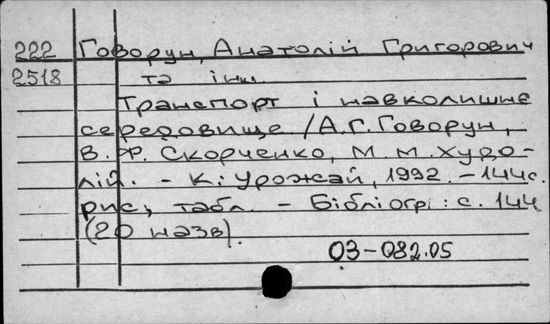 222 Говорун, Анатолій Григорович
2518 та інш.
Транспорт і навколишнє
середовище /А.Г. Говорун,
В.Ф. Скорченко, М.М. Худо-
лій. - К.: Урожай, 1992. - 144с.
рис., табл. - Бібліогр.: с. 144
(20 назв).
03-082.05